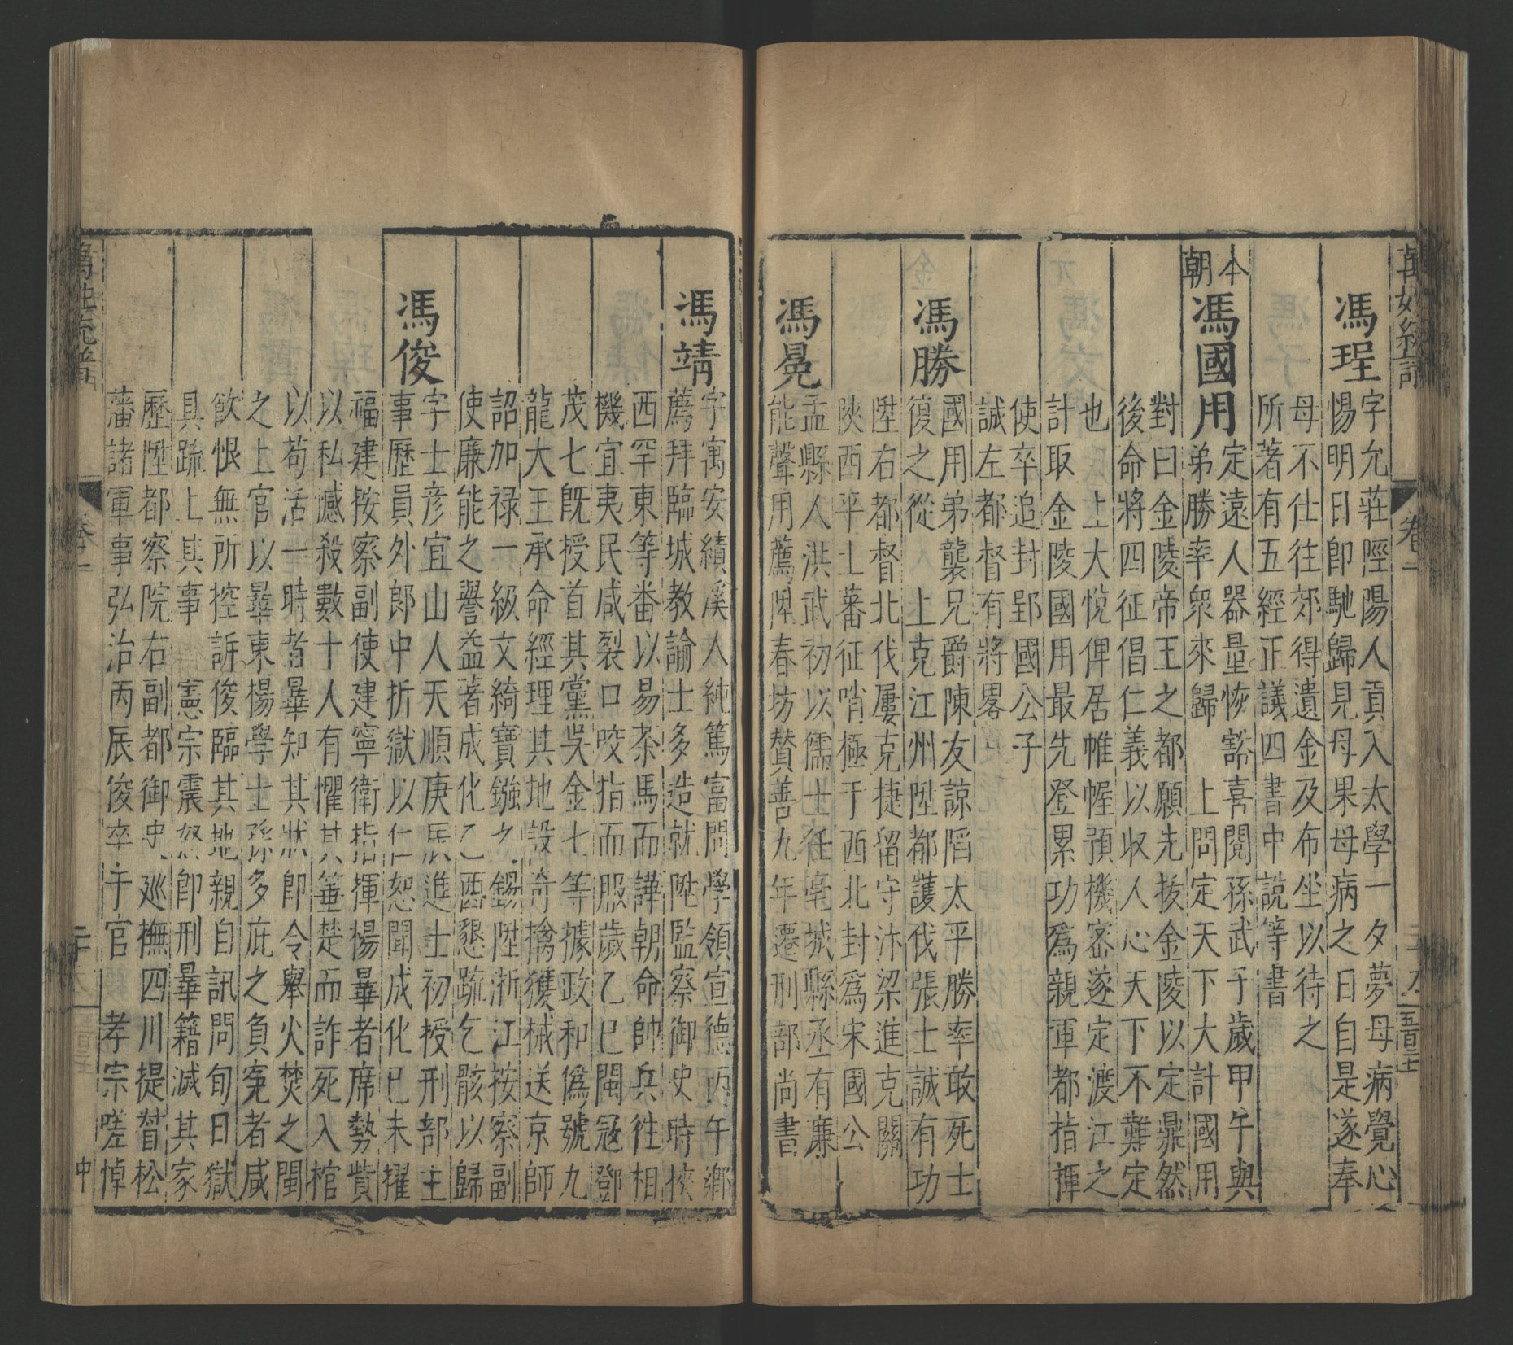 馮珵字允莊陘陽人貢入太學一夕夢母病覺心
惕明日即馳歸見母果母病之日自是遂奉
母不仕往郊得遺金及布坐以待之
所著有五經正議四書中說等書
本朝
馮國用定遠人器量恢豁喜閱孫武子歲甲午與
弟勝率衆來歸 上問定天下大計國用
對曰金陵帝王之都願先拔金陵以定鼎然
後命將四征倡仁義以收人心天下不難定
也 上大悅俾居帷幄預機密遂定渡江之
計取金陵國用最先登累功爲親軍都指揮
使卒追封郢國公子
誠左都督有將畧
馮勝國用弟襲兄爵陳友諒陷太平勝率敢死士
復之從 上克江州陞都護伐張士誠有功
陞右都督北伐屢克捷留守汴梁進克關
陝西平土蕃征哨極于西北封爲宋國公
馮冕孟縣人洪武初以儒士任亳城縣丞有廉
能聲用薦陞春坊贊善九年遷刑部尚書
馮靖字寓安績溪人純篤富問學領宣德丙午鄉
薦拜臨城教諭士多造就陞監察御史時挾
西罕東等番以易茶馬而譁朝命帥兵徃相
機宜夷民咸裂口咬指而服歲乙巳閩冦鄧
茂七旣授首其黨吳金七等據政和僞號九
龍大王承命經理其地設奇擒獲械送京師
詔加祿一級文綺寶鏹之錫陞浙江按察副
使廉能之譽益著成化乙酉懇疏乞骸以歸
馮俊字士彦宜山人天順庚辰進士初授刑部主
事歷員外郎中折獄以仁恕聞成化己未擢
福建按察副使建寧衛指揮楊畢者席勢貲
以私憾殺數十人有懼其箠楚而詐死入棺
以苟活一時者畢知其狀即令舉火焚之閩
之上官以畢東楊學士孫多庇之負寃者咸
飲恨無所控訴俊臨其地親自訊問旬日獄
具疏上其事 憲宗震怒即刑畢籍滅其家
歷陞都察院右副都御史廵撫四川提督松
藩諸軍事弘治丙辰俊卒于官 孝宗嗟悼
萬姓統譜
卷一